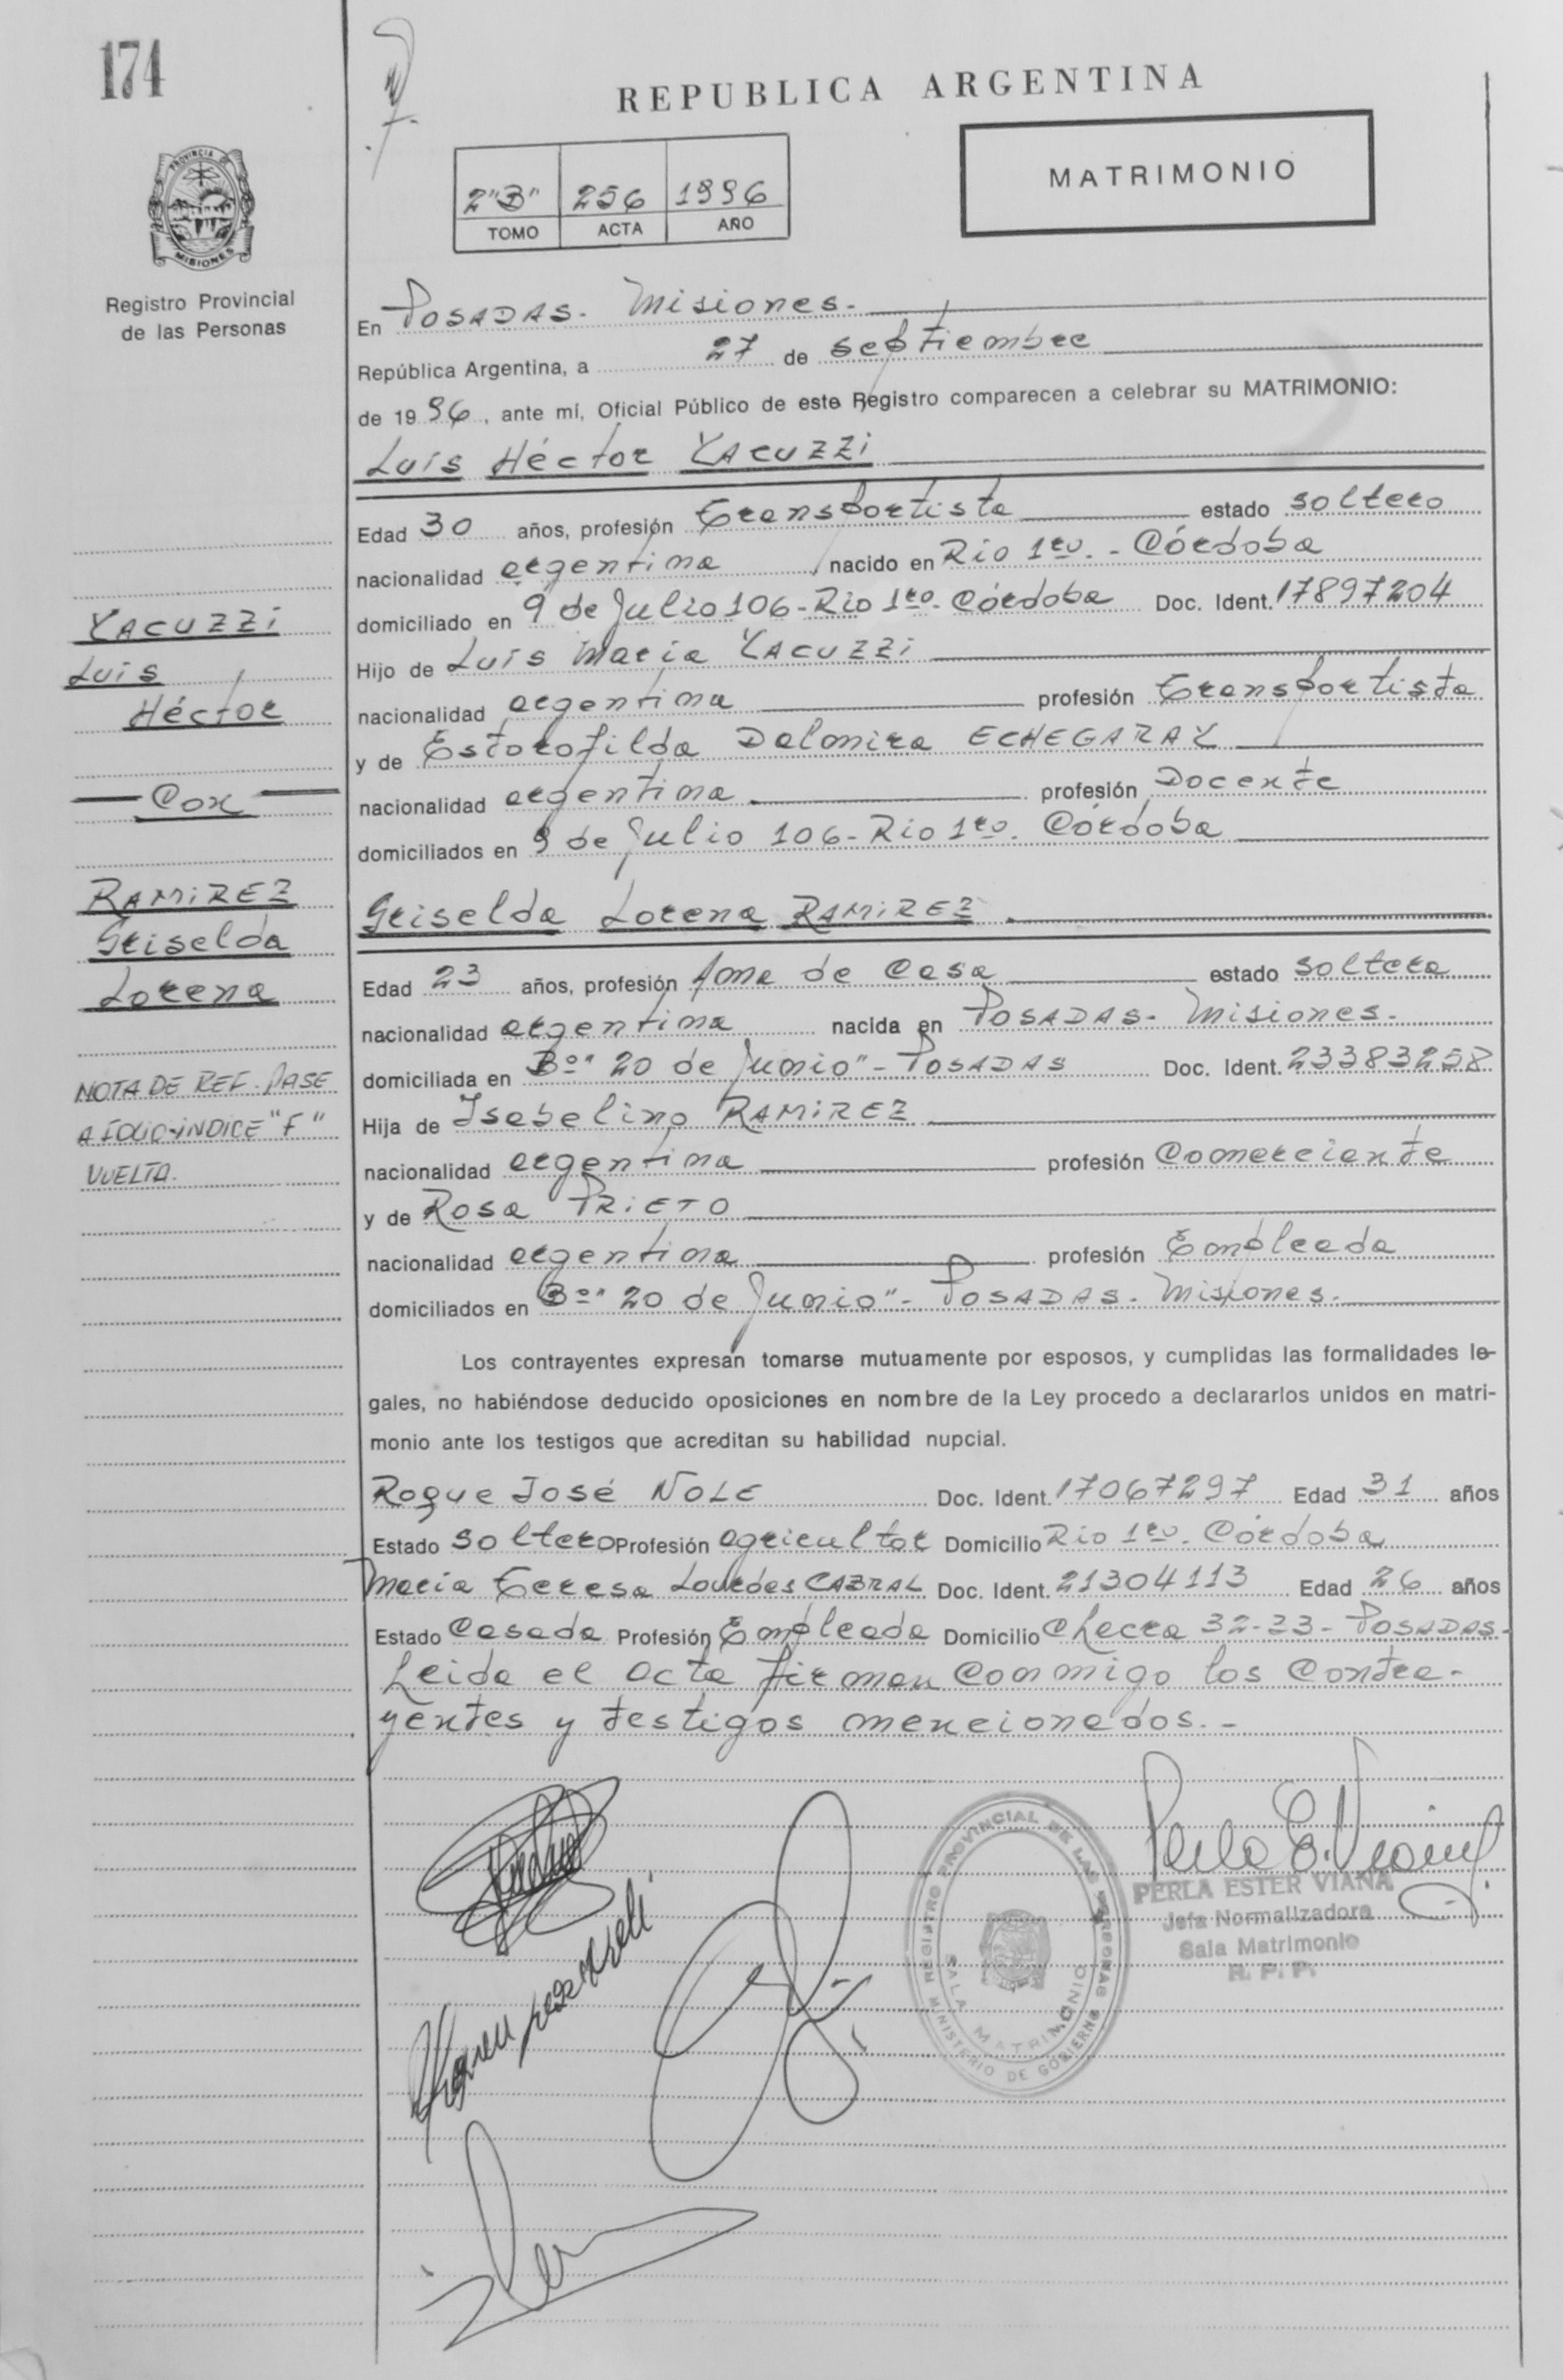 174
REPUBLICA ARGENTINA
MATRIMONIO
2"B" 256 1996
TOMO ACTA AÑO
PROVINCIA DE MISIONES
Registro Provincial
de las Personas
En POSADAS. Misiones.
República Argentina, a 27 de septiembre
de 1996, ante mí, Oficial Público de este Registro comparecen a celebrar su MATRIMONIO:
Luis Héctor YACUZZi
Edad 30 años, profesión transportista estado soltero
nacionalidad argentina nacido en Rio 1ro. - Córdoba
domiciliado en 9 de Julio 106 - Rio 1ro. Córdoba Doc. Ident. 17897204
Hijo de Luis Maria YACUZZi
nacionalidad argentina profesión transportista
y de Estorofilda Dalmira ECHEGARAY
nacionalidad argentina profesión Docente
domiciliados en 9 de Julio 106 - Rio 1ro. Córdoba
Griselda Lorena RAMiREZ
Edad 23 años, profesión Ama de Casa estado soltera
nacionalidad argentina nacida en POSADAS - Misiones.
domiciliada en Bº "20 de Junio" - POSADAS Doc. Ident. 23383258
Hija de Isabelino RAMiREZ
nacionalidad argentina profesión Comerciante
y de Rosa PRiETO
nacionalidad argentina profesión Empleada
domiciliados en Bº "20 de Junio" - POSADAS. Misiones.
Los contrayentes expresan tomarse mutuamente por esposos, y cumplidas las formalidades le-
gales, no habiéndose deducido oposiciones en nombre de la Ley procedo a declararlos unidos en matri-
monio ante los testigos que acreditan su habilidad nupcial.
Roque José NOLE Doc. Ident. 17067297 Edad 31 años
Estado soltero Profesión agricultor Domicilio Rio 1ro. Córdoba
Maria Teresa Lourdes CABRAL Doc. Ident. 21304113 Edad 26 años
Estado Casada Profesión Empleada Domicilio Chacra 32-33 - POSADAS -
Leida el acta firman conmigo los contra-
yentes y testigos mencionados. -
YACUZZi
Luis
Héctor
Con
RAMiREZ
Griselda
Lorena
NOTA DE REF. PASE
A FOLIO-iNDICE "F"
VUELTA.
REGISTRO PROVINCIAL DE LAS PERSONAS
MINISTERIO DE GOBIERNO
SALA MATRIMONIO
PERLA ESTER VIANA
Jefa Normalizadora
Sala Matrimonio
R. P. P.